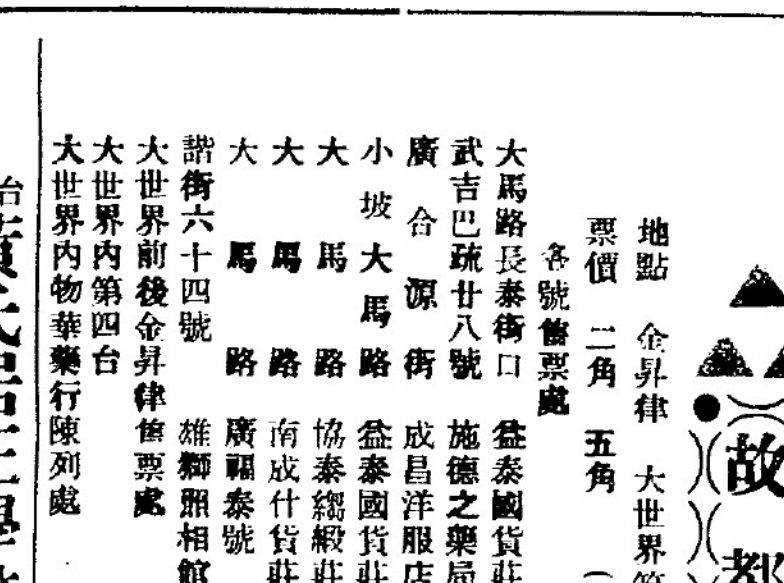 故都
地點 金昇律 大世界
票價 二角 五角
各號售票處
大馬路長泰街口 益泰國貨莊
武吉巴疏廿八號 施德之藥局
廣合源街 成昌洋服店
小坡大馬路 益泰國貨莊
大馬路 協泰綢緞莊
大馬路 南成什貨莊
大馬路 廣福泰號
諧街六十四號 雄獅照相館
大世界前後金昇律售票處
大世界內第四台
大世界內物華藥行陳列處